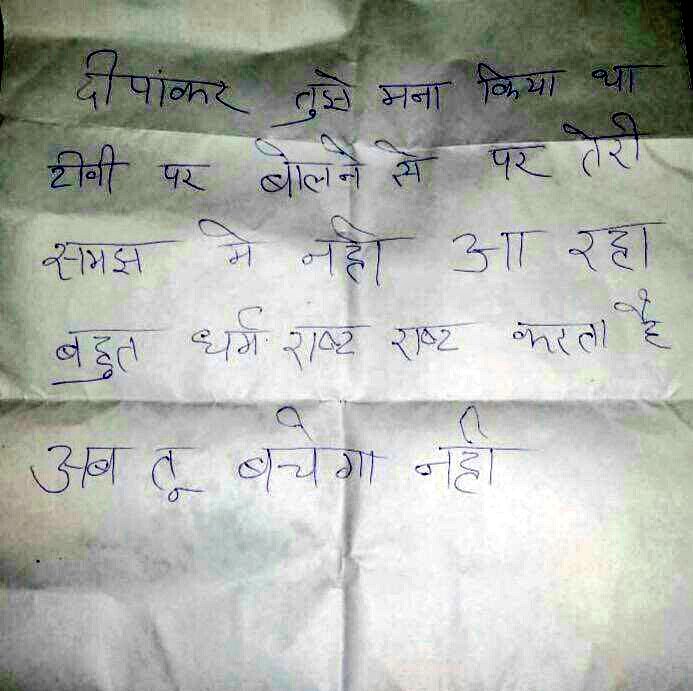 दीपांकर तुझे मना किया था
टीवी पर बोलने से पर तेरी
समझ मे नही आ रहा
बहुत धर्म राष्ट राष्ट करता है
अब तू बचेगा नही